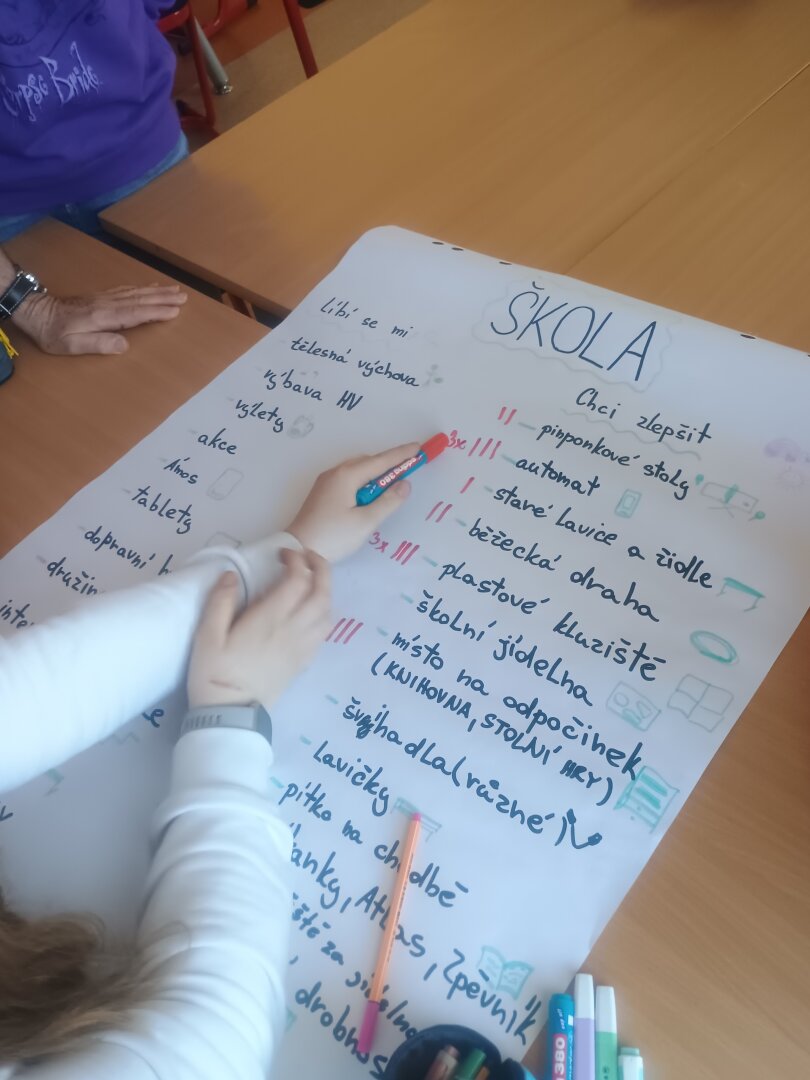 ŠKOLA
Líbí se mi
tělesná výchova
výbava HV
výlety
akce
Ámos
tablety
dopravní
Chci zlepšit
II - pinponkové stoly
3x III - automat
I - staré lavice a židle
II - běžecká draha
3x III - plastové kluziště
- školní jídelna
III - místo na odpočinek
(KNIHOVNA, STOLNÍ HRY)
- švihadla (různé)
- Lavičky
- pítko na chodbě
Atlas, Zpěvník
za
drobnos
edding 380
380
Bride